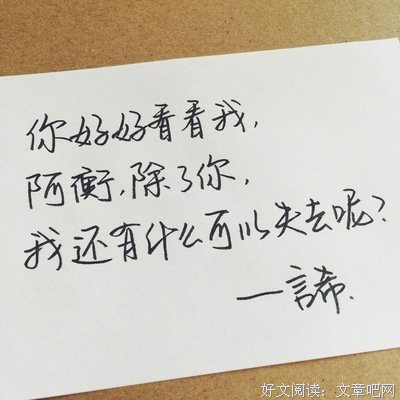 你好好看看我,
阿衡,除了你,
我还有什么可以失去呢?
一言希.
好文阅读：文章吧网